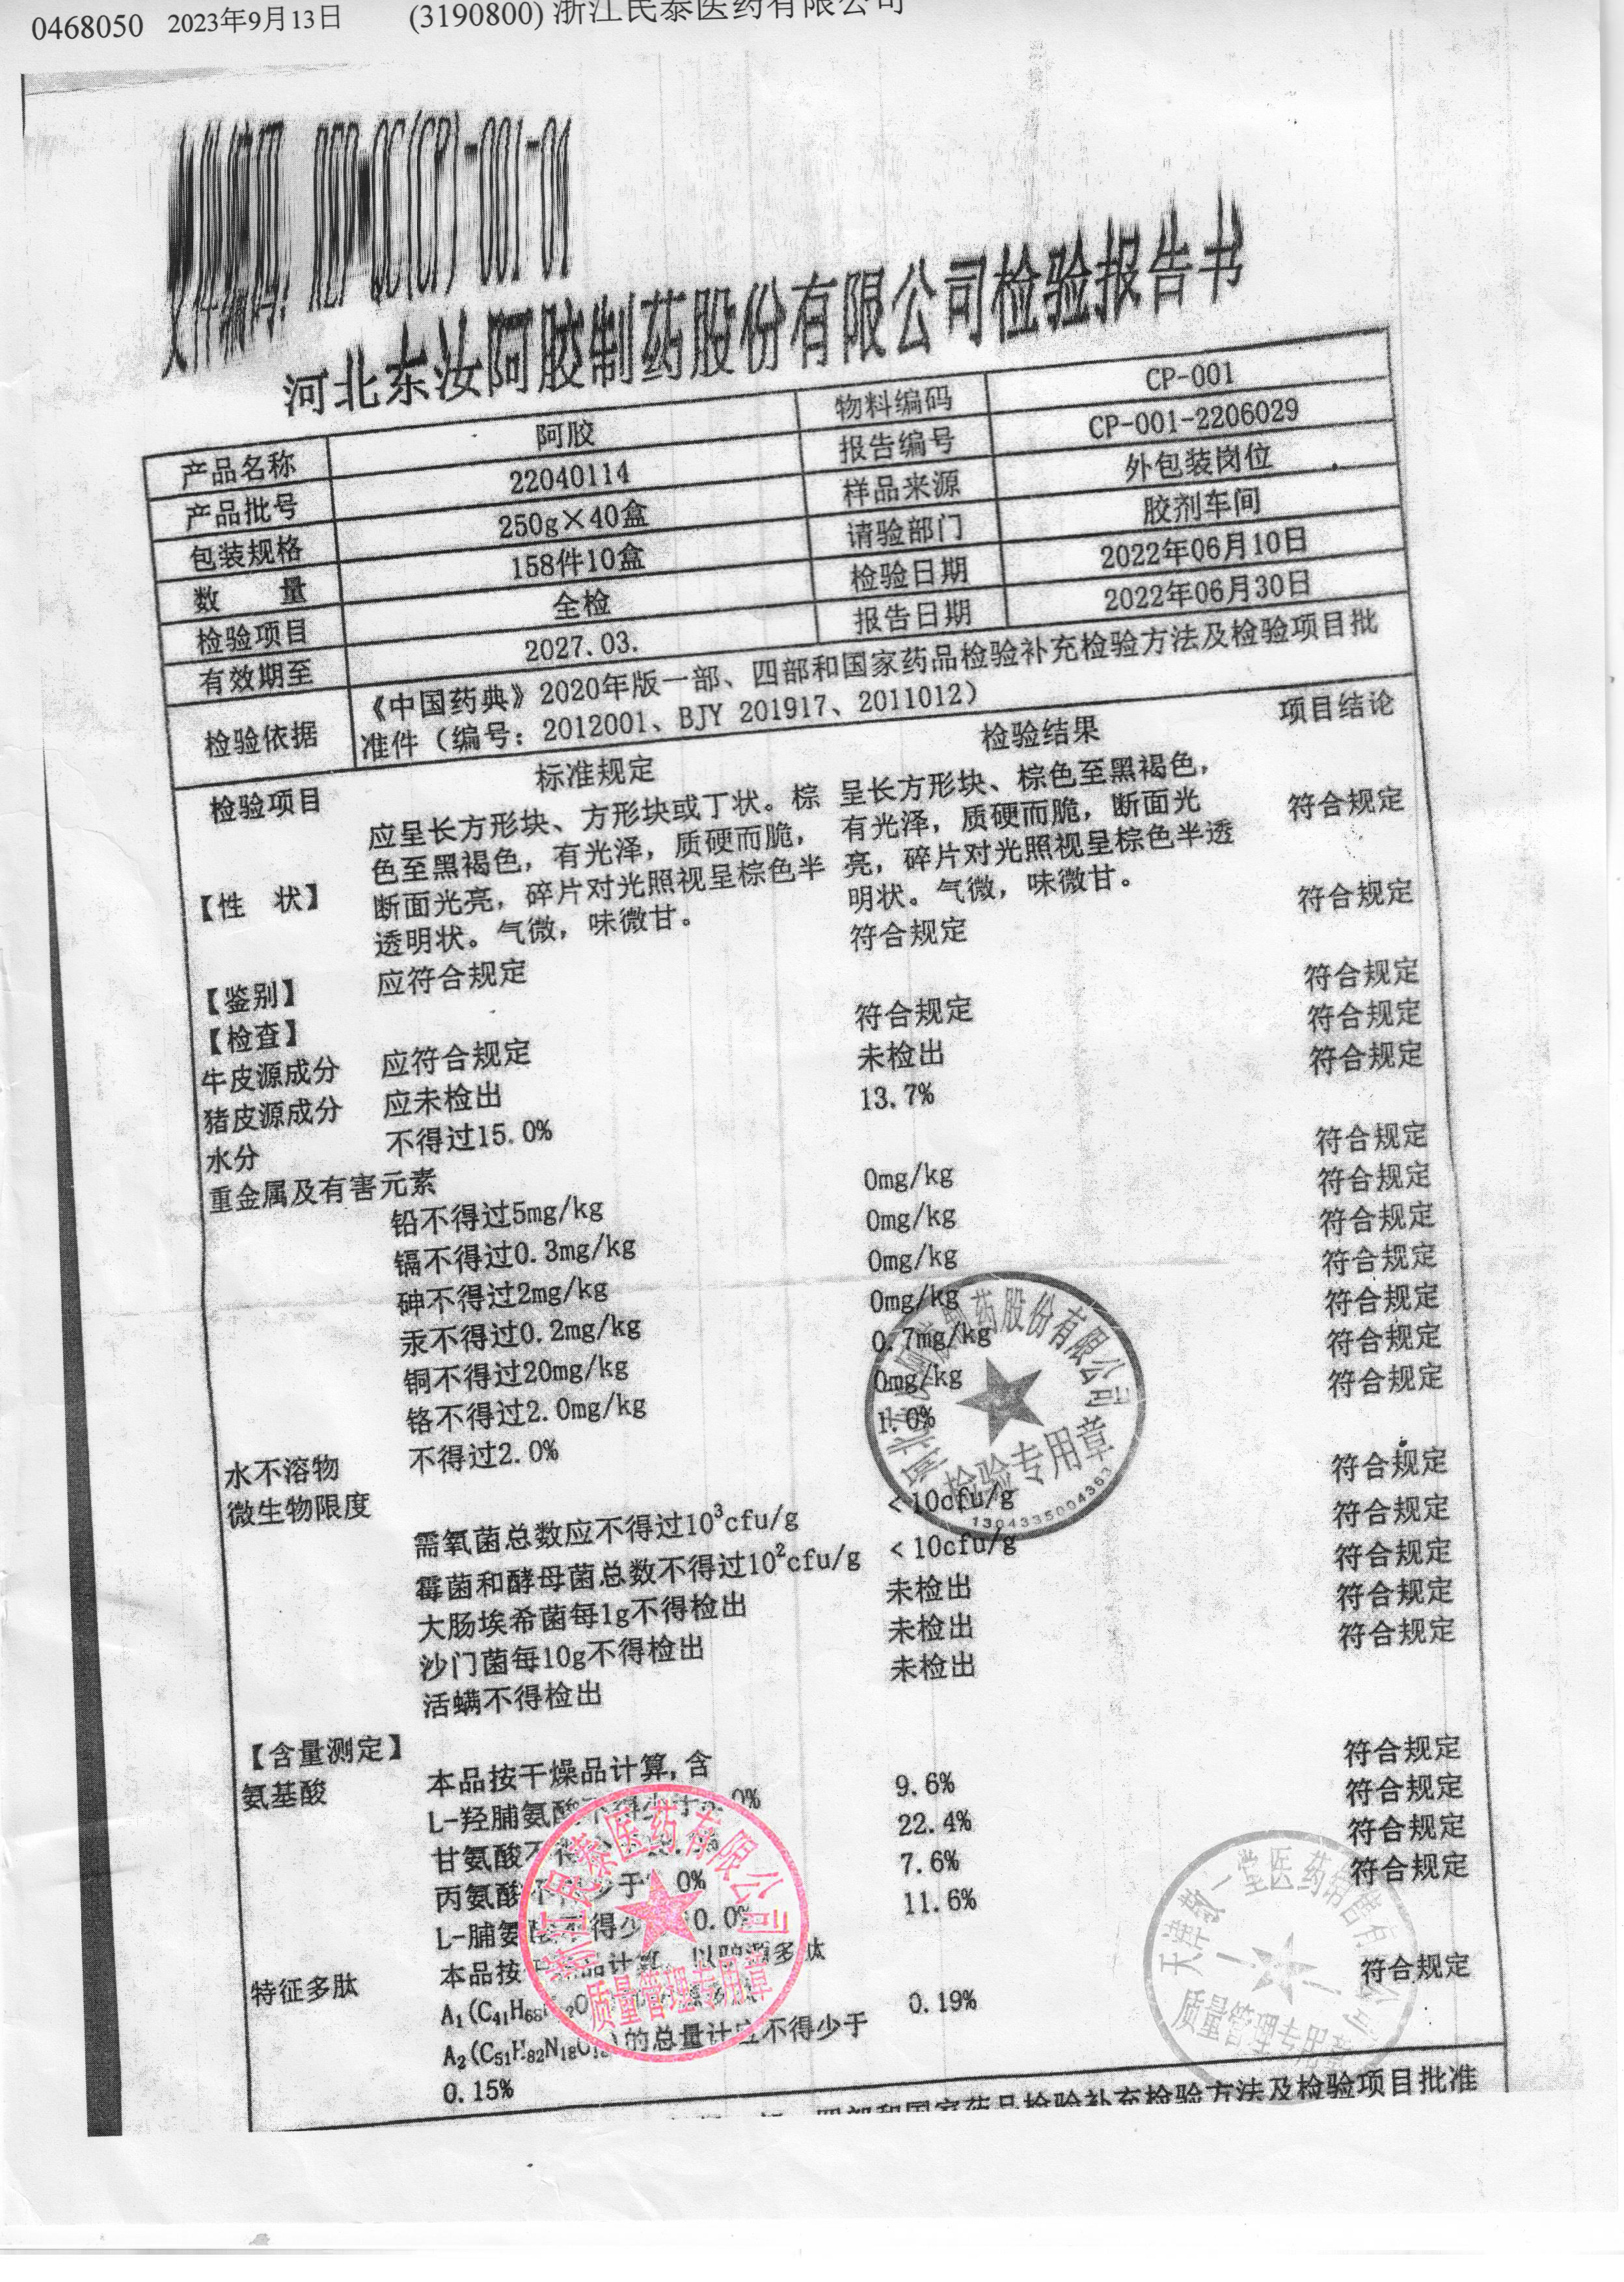 0468050 2023年9月13日 (3190800) 浙江民泰医药有限公司
文件编码: REP-QC(CP)-001-01
河北东汝阿胶制药股份有限公司检验报告书
产品名称 阿胶 物料编码 CP-001
产品批号 22040114 报告编号 CP-001-2206029
包装规格 250g×40盒 样品来源 外包装岗位
数 量 158件10盒 请验部门 胶剂车间
检验项目 全检 检验日期 2022年06月10日
有效期至 2027.03. 报告日期 2022年06月30日
检验依据 《中国药典》2020年版一部、四部和国家药品检验补充检验方法及检验项目批
准件（编号：2012001、BJY 201917、2011012）
检验项目 标准规定 检验结果 项目结论
【性 状】 应呈长方形块、方形块或丁状。棕 呈长方形块、棕色至黑褐色， 符合规定
色至黑褐色，有光泽，质硬而脆， 有光泽，质硬而脆，断面光
断面光亮，碎片对光照视呈棕色半 亮，碎片对光照视呈棕色半透
透明状。气微，味微甘。 明状。气微，味微甘。
【鉴别】 应符合规定 符合规定 符合规定
【检查】
牛皮源成分 应符合规定 符合规定 符合规定
猪皮源成分 应未检出 未检出 符合规定
水分 不得过15.0% 13.7% 符合规定
重金属及有害元素
铅不得过5mg/kg 0mg/kg 符合规定
镉不得过0.3mg/kg 0mg/kg 符合规定
砷不得过2mg/kg 0mg/kg 符合规定
汞不得过0.2mg/kg 0mg/kg 符合规定
铜不得过20mg/kg 0.7mg/kg 符合规定
铬不得过2.0mg/kg 0mg/kg 符合规定
水不溶物 不得过2.0% 1.0% 符合规定
微生物限度
需氧菌总数应不得过10³cfu/g <10cfu/g 符合规定
霉菌和酵母菌总数不得过10²cfu/g <10cfu/g 符合规定
大肠埃希菌每1g不得检出 未检出 符合规定
沙门菌每10g不得检出 未检出 符合规定
活螨不得检出 未检出 符合规定
药股份有限公司
检验专用章
1304335004363
【含量测定】
氨基酸 本品按干燥品计算,含
L-羟脯氨酸不得少于 0% 9.6% 符合规定
甘氨酸不得 22.4% 符合规定
丙氨酸不 少于 0% 7.6% 符合规定
L-脯氨 得少 0.0% 11.6% 符合规定
特征多肽 本品按 品计算 多肽
A₁(C₄₁H₆₈ 0.19% 符合规定
A₂(C₅₁H₈₂N₁₈O )的总量计应不得少于
0.15%
浙江民泰医药有限公司
质量管理专用章
天津敬一堂医药销售有限公司
质量管理专用章
四部和国家药品检验补充检验方法及检验项目批准